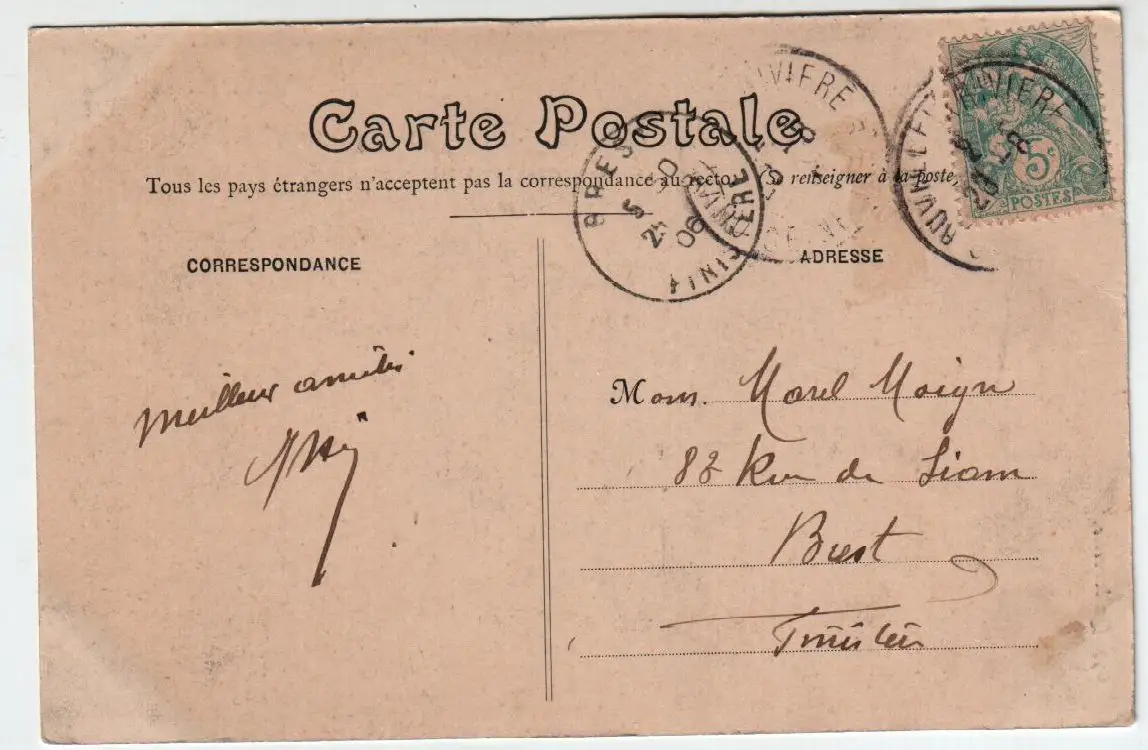 Carte Postale
Tous les pays étrangers n'acceptent pas la correspondance au recto. (Se renseigner à la poste.
CORRESPONDANCE
Meilleur amitié
ADRESSE
Mons. Marcel Moign
82 Rue de Siam
Brest
Finistère
BREST
FINISTERE
06
RIVIERE
5c
POSTES